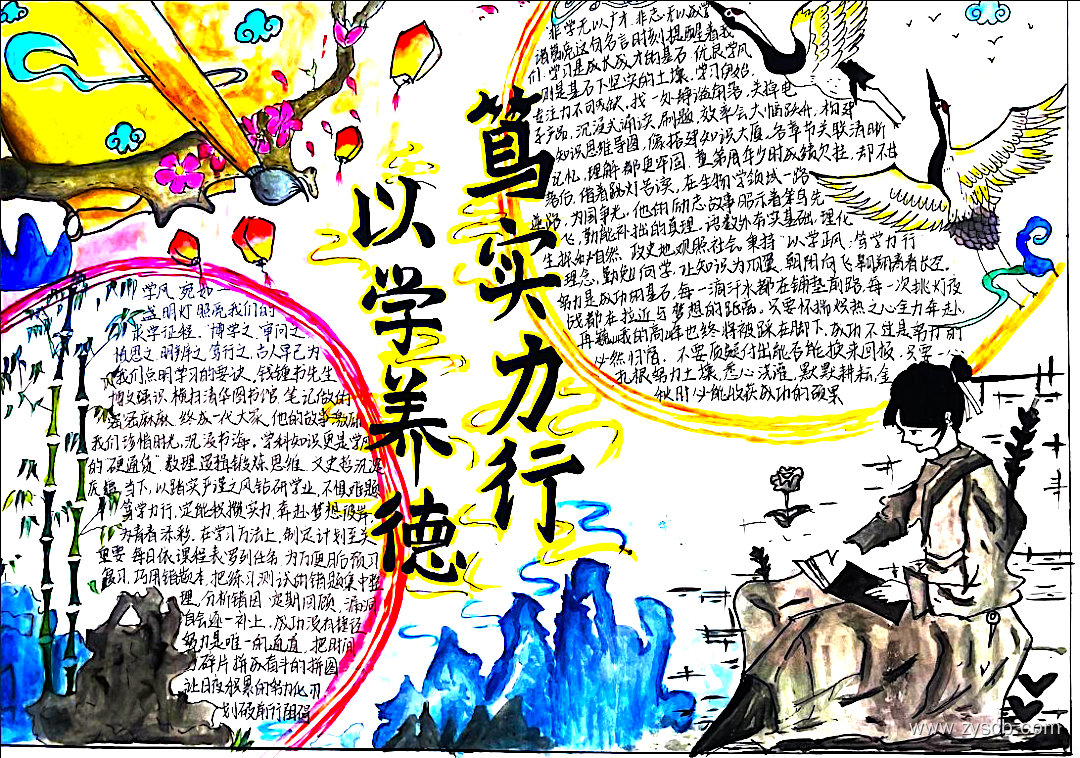 笃实力行
以学养德
非学无以广才,非志无以成学
诸葛亮这句名言时刻提醒着我
们,学习是成长成才的基石,优良学风
则是基石下坚实的土壤。学习伊始,
专注力不可或缺,找一处静谧角落,关掉电
子产品,沉浸式诵读、刷题,效率会大幅跃升。构建
知识思维导图,像搭建知识大厦,各章节关联清晰
记忆、理解都更牢固。童第周年少时成绩欠佳,却不甘
落后,借着路灯苦读,在生物学领域一路
逆袭,为国争光,他的励志故事昭示着笨鸟先
飞、勤能补拙的真理。语数外夯实基础,理化
生探秘自然,政史地观照社会,秉持“以学正风,笃学力行
理念,勤勉向学,让知识为双翼,朝用向飞翱翔青春长空。
努力是成功的基石,每一滴汗水都在铺垫前路,每一次挑灯夜
战都在拉近与梦想的距离。只要怀揣炽热之心全力奔赴,
再巍峨的高峰也终将被踩在脚下,成功不过是努力的
必然归宿。不要质疑付出能否能换来回报,只要一心
扎根努力土壤,悉心浇灌,默默耕耘,金
秋时必能收获成功的硕果
学风,宛如
一盏明灯,照亮我们的
求学征程。“博学之,审问之,
慎思之,明辨之,笃行之。”古人早已为
我们点明学习的要诀。钱锺书先生
博文强识,横扫清华图书馆,笔记做的
密密麻麻,终成一代大家。他的故事激励
我们珍惜时光,沉浸书海。学科知识更是学风
的“硬通货”,数理逻辑锻炼思维,文史哲沉淀
底蕴。当下,以踏实严谨之风钻研学业,不惧难题
笃学力行,定能收获实力,奔赴梦想彼岸,
为青春添彩。在学习方法上,制定计划至关
重要,每日依课程表罗列任务,为方便日后预习
复习,巧用错题本,把练习测试的错题集中整
理,分析错因,定期回顾,漏洞
自会逐一补上。成功没有捷径
努力是唯一的通道,把时间
碎片拼成奋斗的拼图
让日夜积累的努力化刃
划破前行阻碍
www.zyscb.com